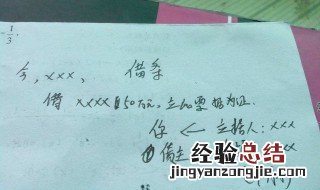 -1/3.
今, xxx, 借条
借 xxxx 50万元, 立如要据为证.
你 ← 立据人: xxx
借主
xx
经验总结
www.jingyanzongjie.com